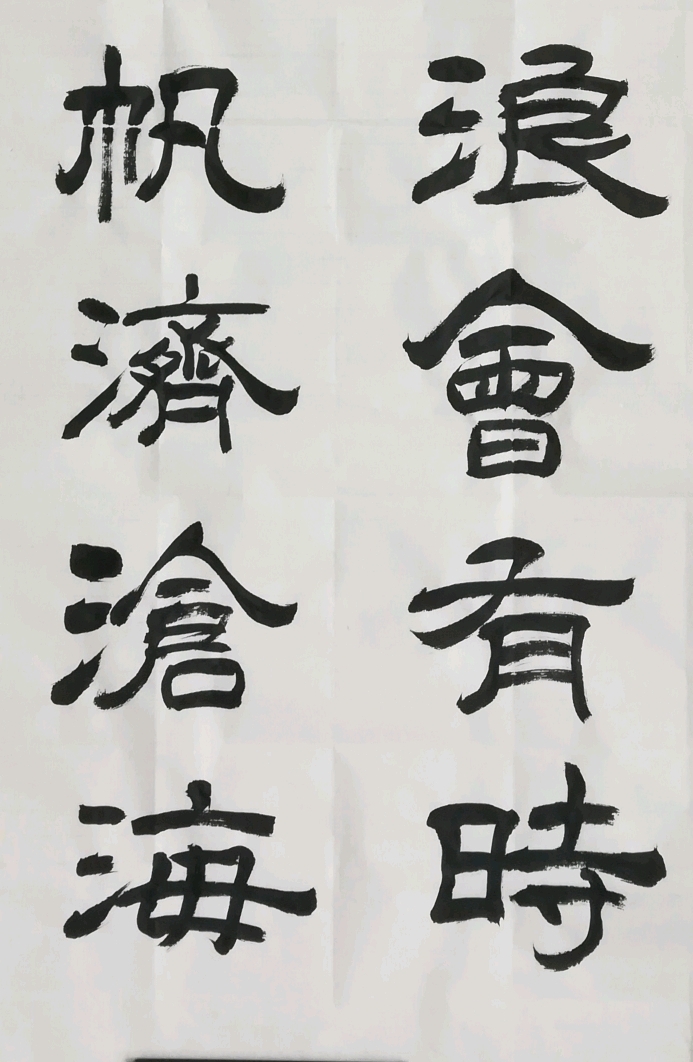 浪會有時
帆濟滄海